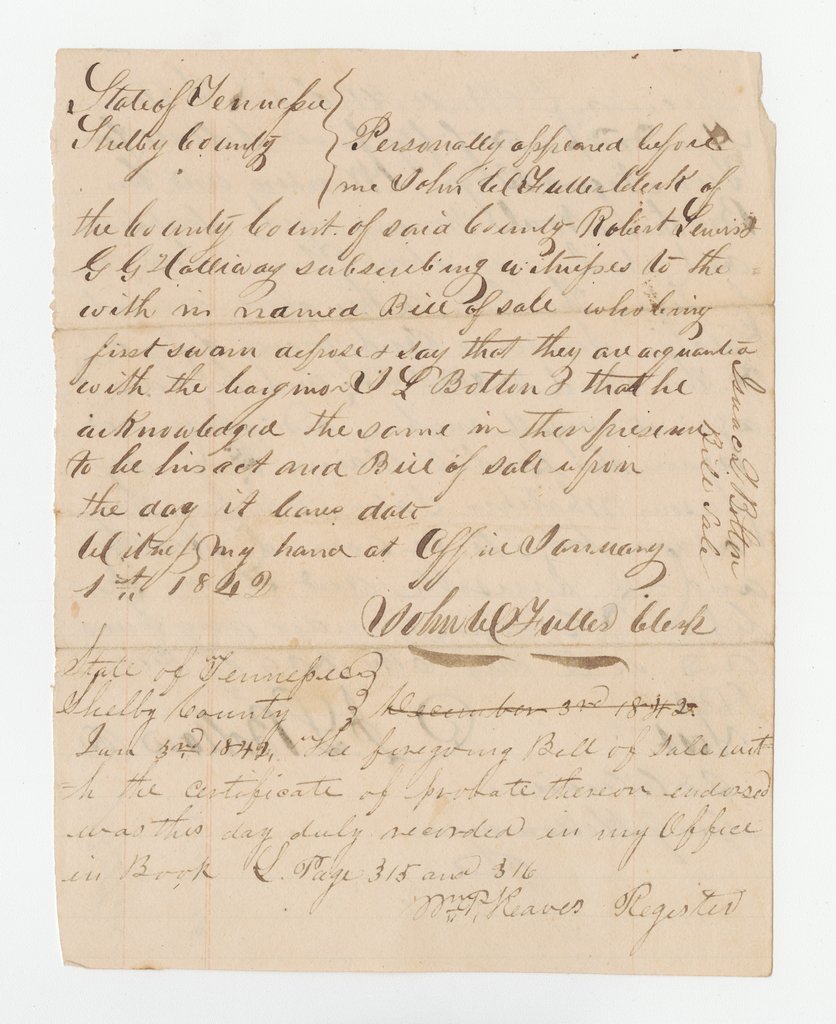 State of Tennessee
Shelby County } Personally appeared before
me John W Fuller Clerk of
the County Court of said County Robert Lewis &
G G Holliway subscribing witnesses to the
with in named Bill of sale who being
first sworn depose & say that they are acquanted
with the barginor I L Bolton & that he
acknowledged the same in their presence
to be his act and Bill of sale upon
the day it bears date
Witness my hand at Office January
1st 1842
John W Fuller Clerk
Isaac L Bolton
Bill Sale
State of Tennessee }
Shelby County } December 3rd 1842.
Jan 3rd 1842, The foregoing Bill of Sale wit-
-h the certificate of probate thereon endorsed
was this day duly recorded in my Office
in Book L. Page 315 and 316
Wm P. Reaves Register